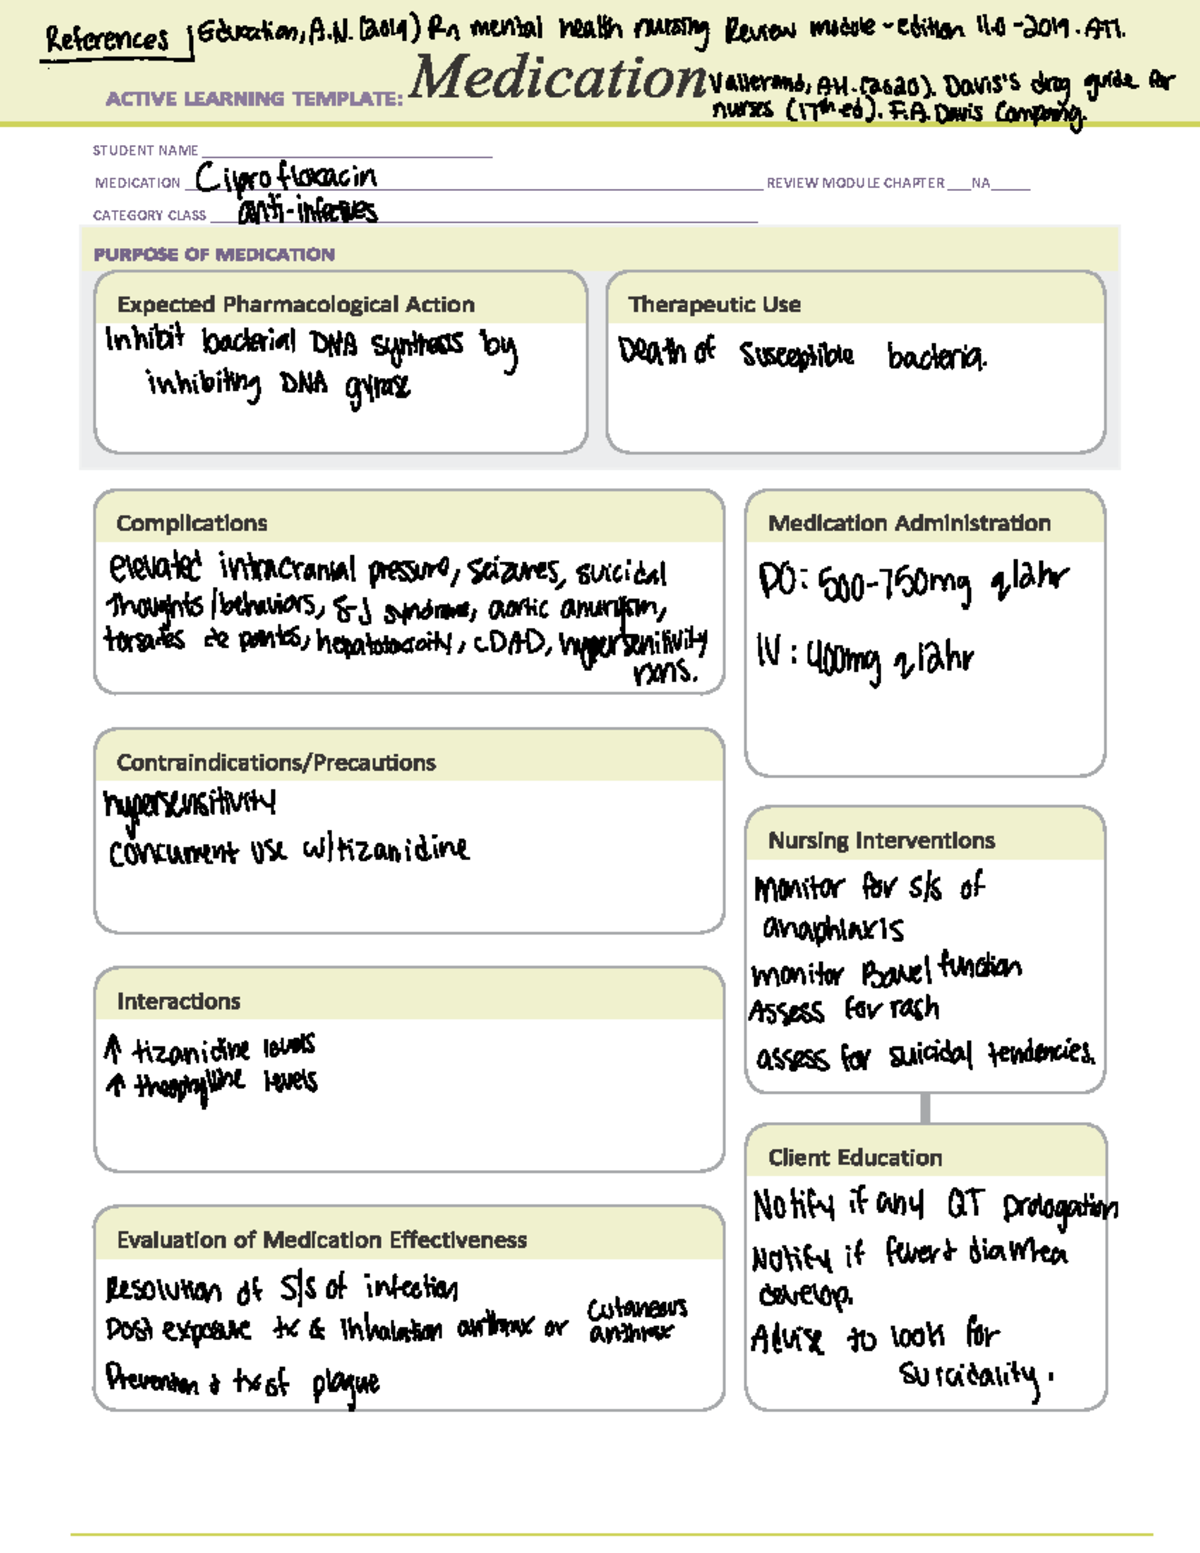 References Education, A.N. (2019) Rn mental health nursing Review module - edition 11.0 - 2019. ATI.
ACTIVE LEARNING TEMPLATE: Medication
Vallerand, A.H. (2020). Davis's drug guide for
nurses (17th ed). F.A. Davis Company.
STUDENT NAME
MEDICATION Ciprofloxacin REVIEW MODULE CHAPTER NA
CATEGORY CLASS anti-infectives
PURPOSE OF MEDICATION
Expected Pharmacological Action
Inhibit bacterial DNA synthesis by
inhibiting DNA gyrase
Therapeutic Use
Death of susceptible bacteria.
Complications
elevated intracranial pressure, seizures, suicidal
thoughts/behaviors, S-J syndrome, aortic anurysm,
torsades de pointes, hepatotoxicity, CDAD, hypersenitivity
rxns.
Medication Administration
PO: 500-750mg q12hr
IV: 400mg q12hr
Contraindications/Precautions
hypersensitivity
concurrent use w/tizanidine
Nursing Interventions
Monitor for s/s of
anaphlaxis
monitor Bowel function
Assess for rash
assess for suicidal tendencies.
Interactions
↑ tizanidine levels
↑ theophylline levels
Client Education
Notify if any QT prologation
Notify if fever + diarrhea
develop.
Advise to look for
suicidality.
Evaluation of Medication Effectiveness
Resolution of S/S of infection
Post exposure tx & Inhalation anthrax or cutaneous
anthrax
Prevention & tx of plague